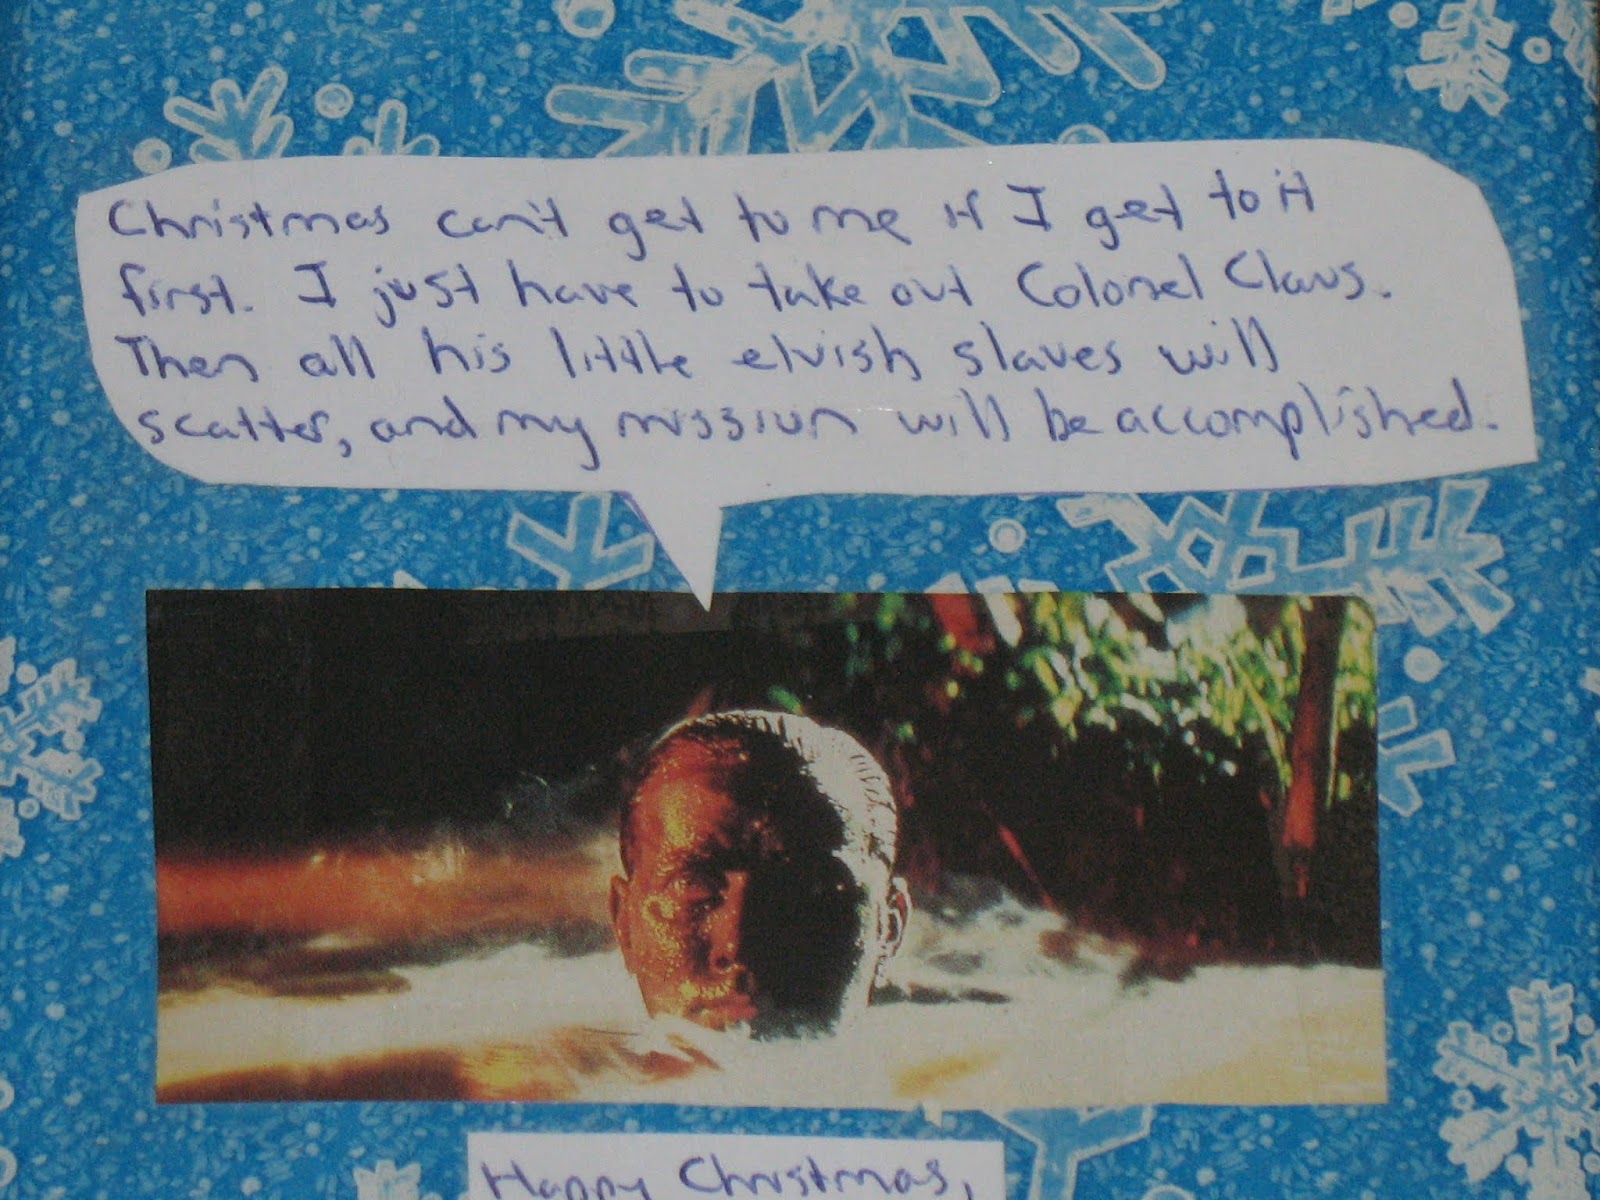 Christmas can't get to me if I get to it
first. I just have to take out Colonel Claus.
Then all his little elvish slaves will
scatter, and my mission will be accomplished.
Happy Christmas,